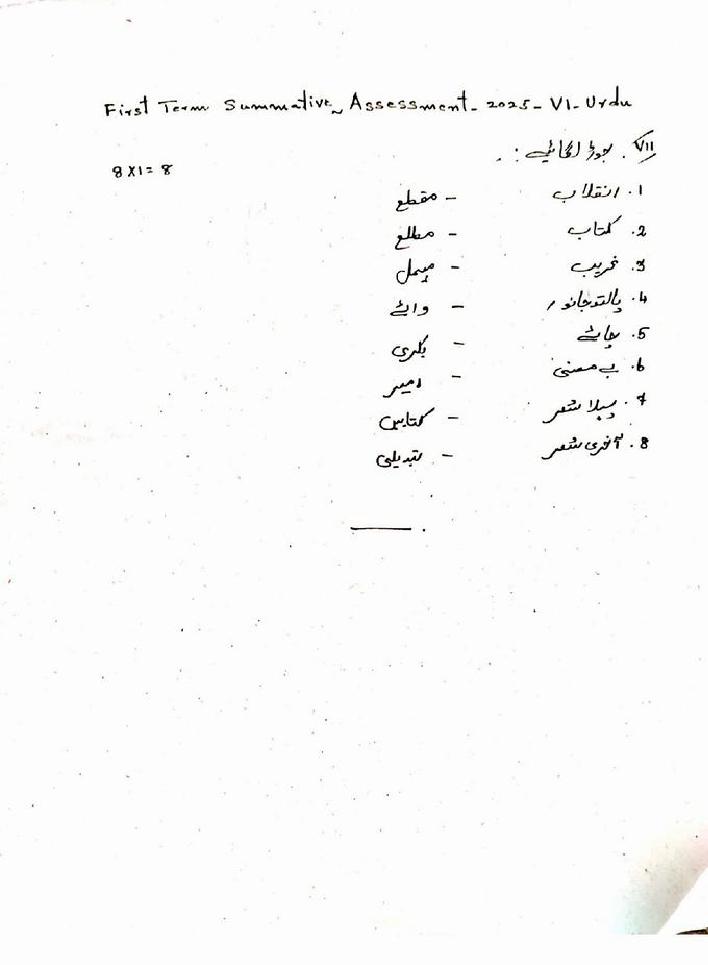 First Term Summative Assessment - 2025 - VI - Urdu
VII. جوڑ لگائیے :.
8 X 1 = 8
1. انقلاب - مقطع
2. کتاب - مطلع
3. غریب - مہمل
4. پالتو جانور - وائے
5. چائے - بکری
6. بے معنی - امیر
7. پہلا شعر - کتابیں
8. آخری شعر - تبدیلی